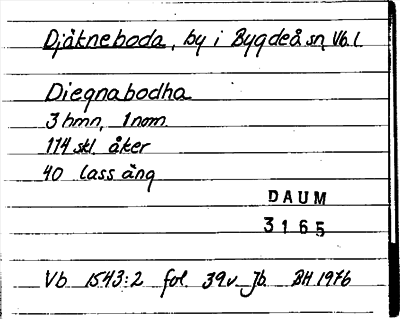 Djäkneboda, by i Bygdeå sn, Vb. l.
Diegnabodha
3 hmn, 1 nam.
114 skl. åker
40 lass äng
DAUM
3165
Vb 1543:2 fol. 39v. Jb. BH 1976